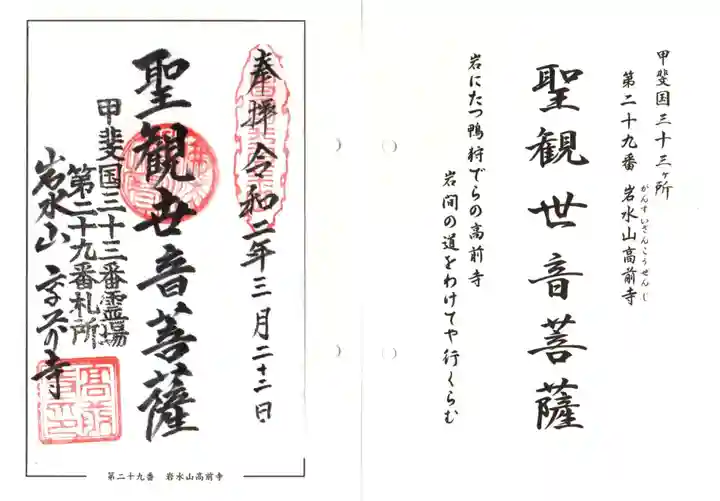 甲斐国三十三ヶ所
第二十九番 岩水山高前寺
がんすいざんこうせんじ
聖観世音菩薩
岩にたつ鴨狩でらの高前寺
岩間の道をわけてや行くらむ
奉拝 令和二年三月二十二日
聖観世音菩薩
甲斐国三十三番霊場
第二十九番札所
岩水山 高前寺
高前
第二十九番 岩水山高前寺